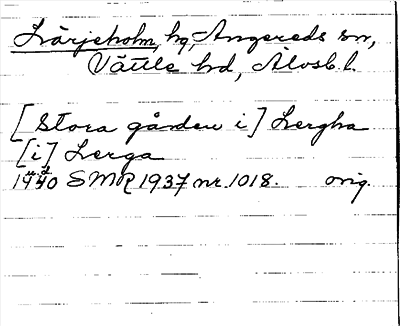 Lärjeholm, hg, Angereds sn,
Vättle hd, Älvsb. l.
[Stora gården i] Lergha
[i] Lerga
1440 SMR 1937 nr. 1018. orig.